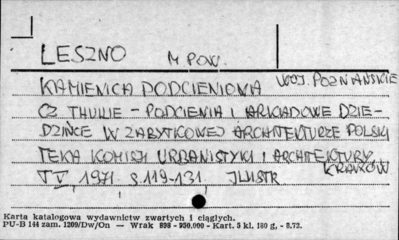 LESZNO M POW.
KAMIENICA PODCIENIOWA WOJ. POZNAŃSKIE
CZ THULLIE – PODCIENIA I ARKADOWE DZIE–
DZIŃCE W ZABYTKOWEJ ARCHITEKTURZE POLSKI
TEKA KOMISJI URBANISTYKI I ARCHITEKTURY,
T V, 1971 S. 119–131. ILUSTR. KRAKÓW
Karta katalogowa wydawnictw zwartych i ciągłych.
PU-B 144 zam. 1209/Dw/On — Wrak 898 - 950.000 - Kart. 5 kl. 180 g. - 8.72.